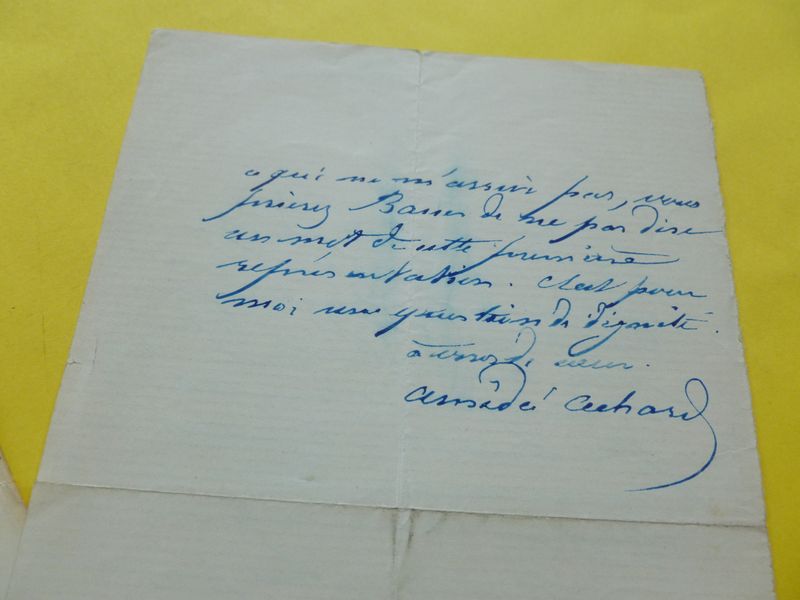 a qui ne m'arrive pas, vous
prierez de ne pas dire
un mot de cette première
représentation. C'est pour
moi une question de dignité.
à vous de cœur.
Amédée Achard